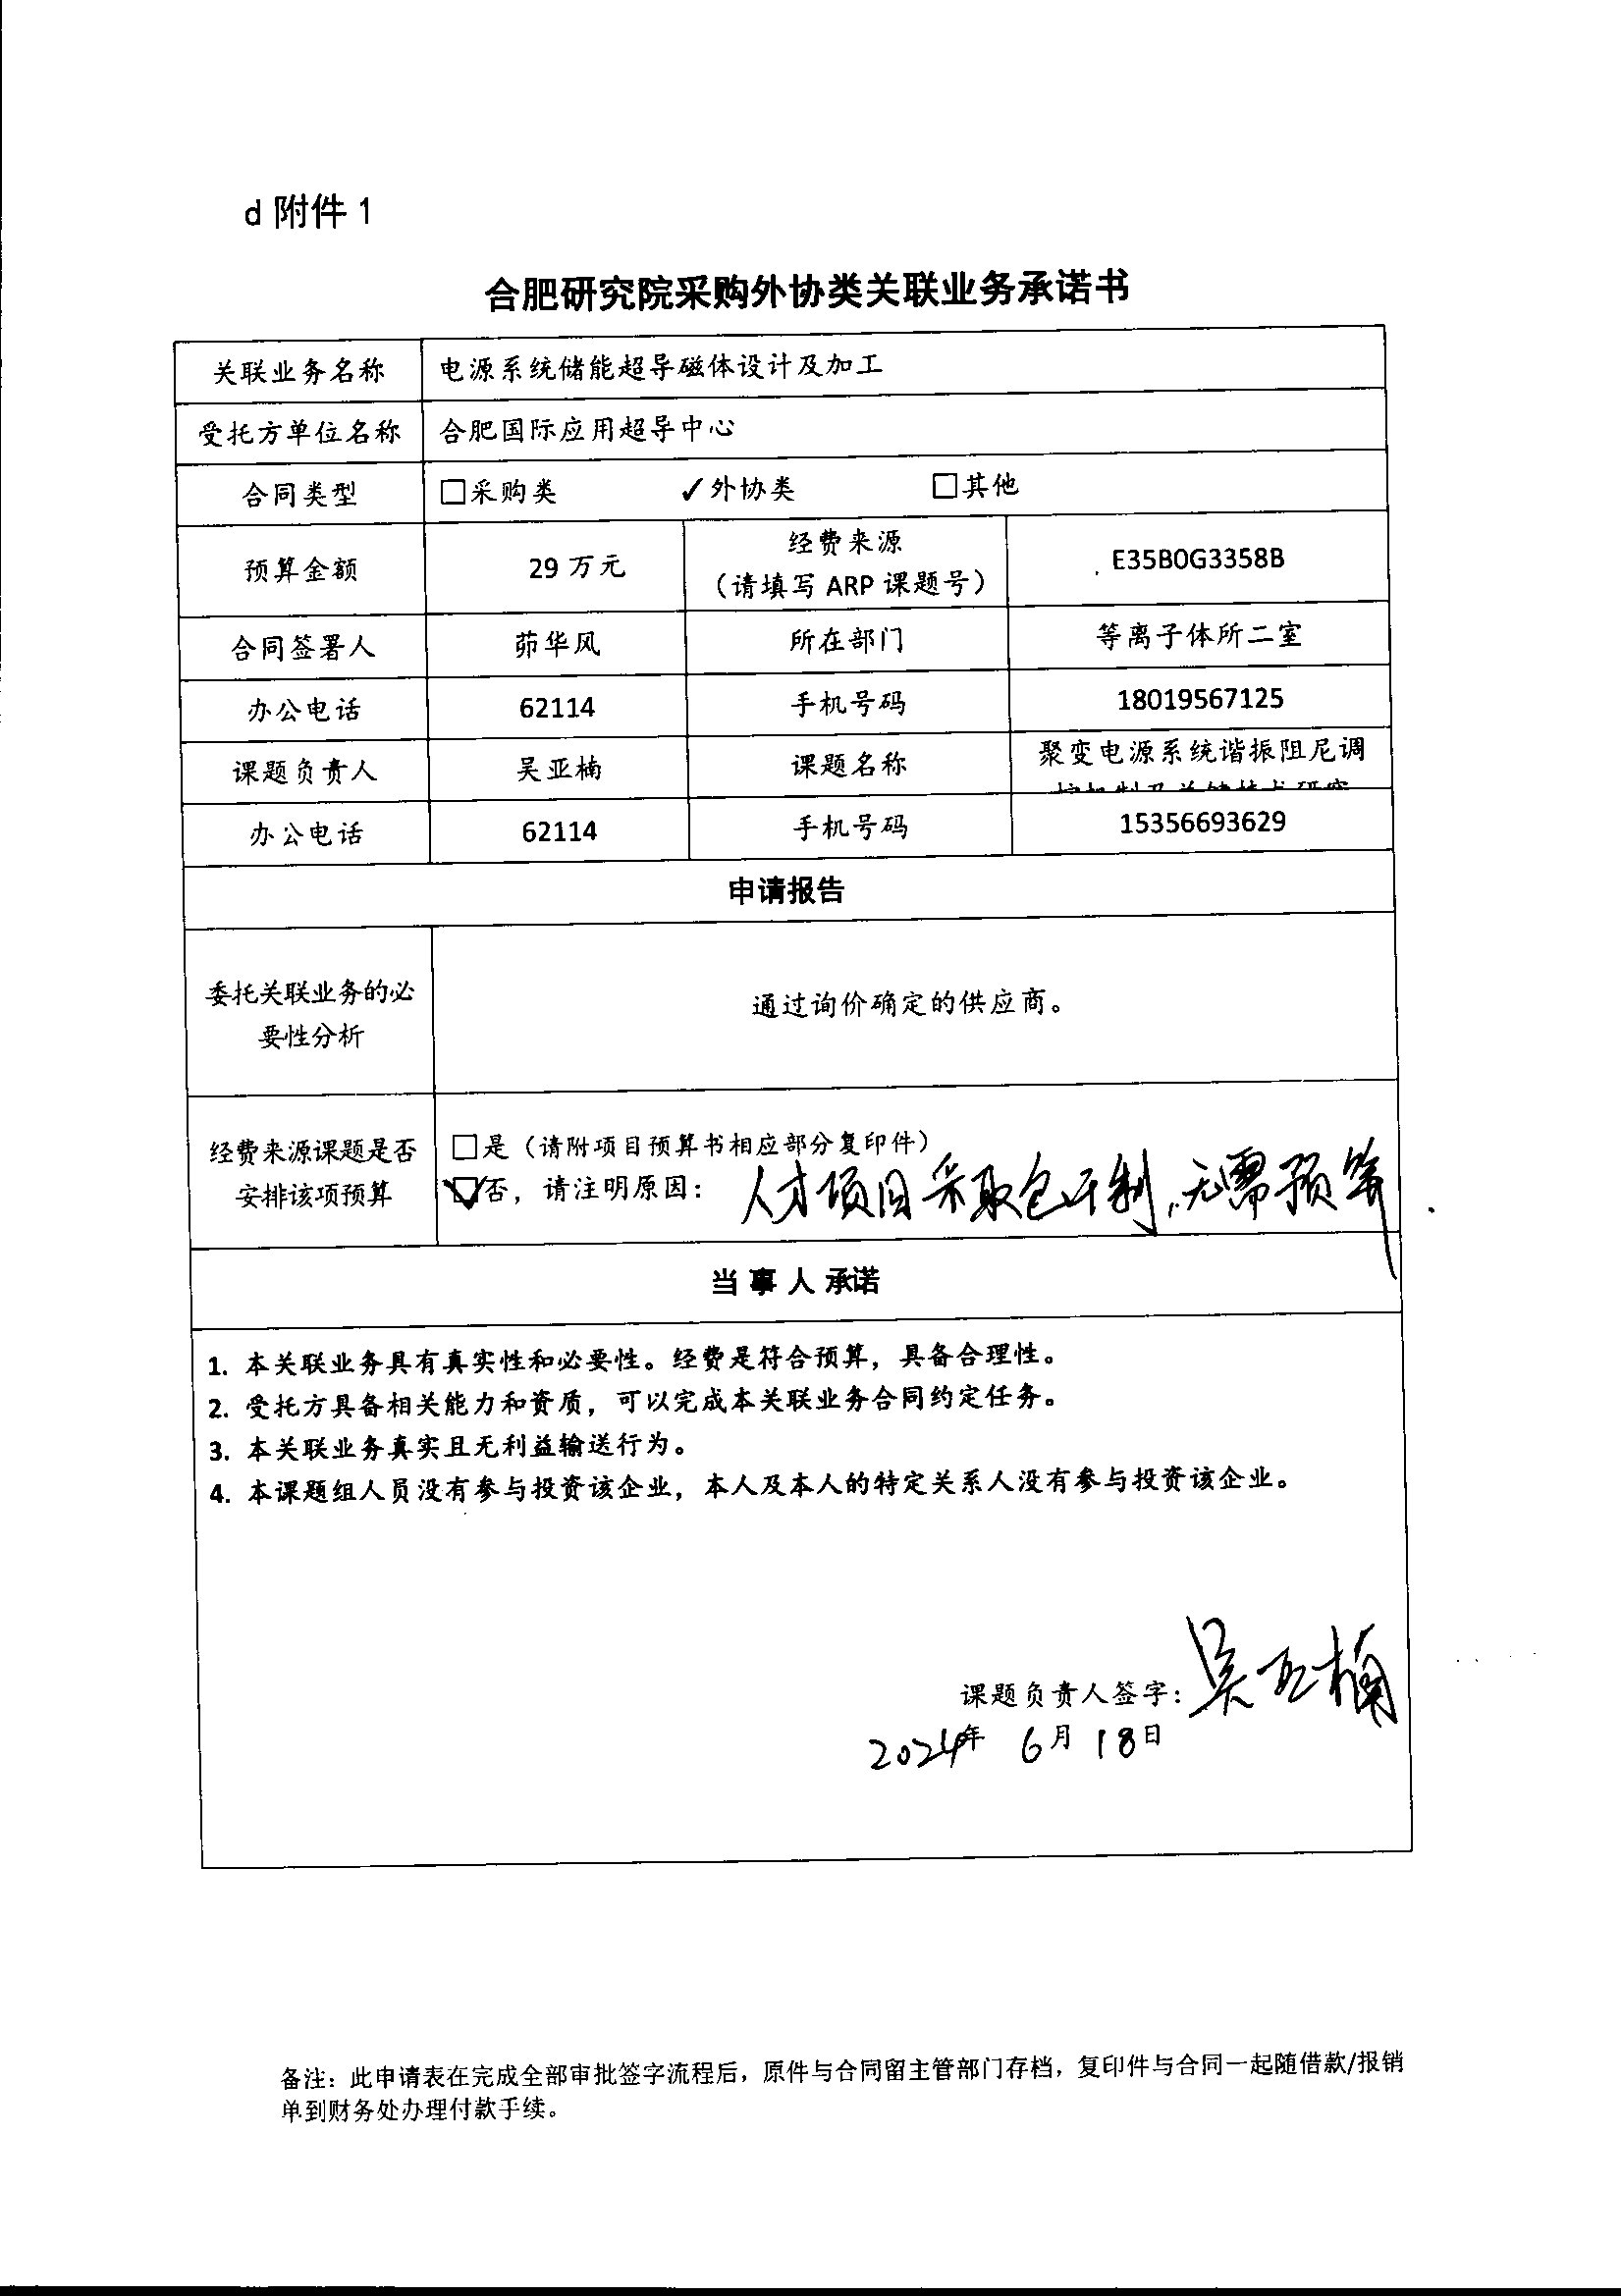 d 附件 1
合肥研究院采购外协类关联业务承诺书
关联业务名称 电源系统储能超导磁体设计及加工
受托方单位名称 合肥国际应用超导中心
合同类型 □采购类 ✓外协类 □其他
预算金额 29 万元 经费来源 E35B0G3358B
（请填写 ARP 课题号）
合同签署人 茆华风 所在部门 等离子体所二室
办公电话 62114 手机号码 18019567125
课题负责人 吴亚楠 课题名称 聚变电源系统谐振阻尼调
控机制及关键技术研究
办公电话 62114 手机号码 15356693629
申请报告
委托关联业务的必
要性分析
通过询价确定的供应商。
经费来源课题是否
安排该项预算
□是（请附项目预算书相应部分复印件）
☑否，请注明原因： 人才项目采取包干制，无需预算.
当 事 人 承诺
1. 本关联业务具有真实性和必要性。经费是符合预算，具备合理性。
2. 受托方具备相关能力和资质，可以完成本关联业务合同约定任务。
3. 本关联业务真实且无利益输送行为。
4. 本课题组人员没有参与投资该企业，本人及本人的特定关系人没有参与投资该企业。
课题负责人签字: 吴亚楠
2024年 6月 18日
备注：此申请表在完成全部审批签字流程后，原件与合同留主管部门存档，复印件与合同一起随借款/报销
单到财务处办理付款手续。